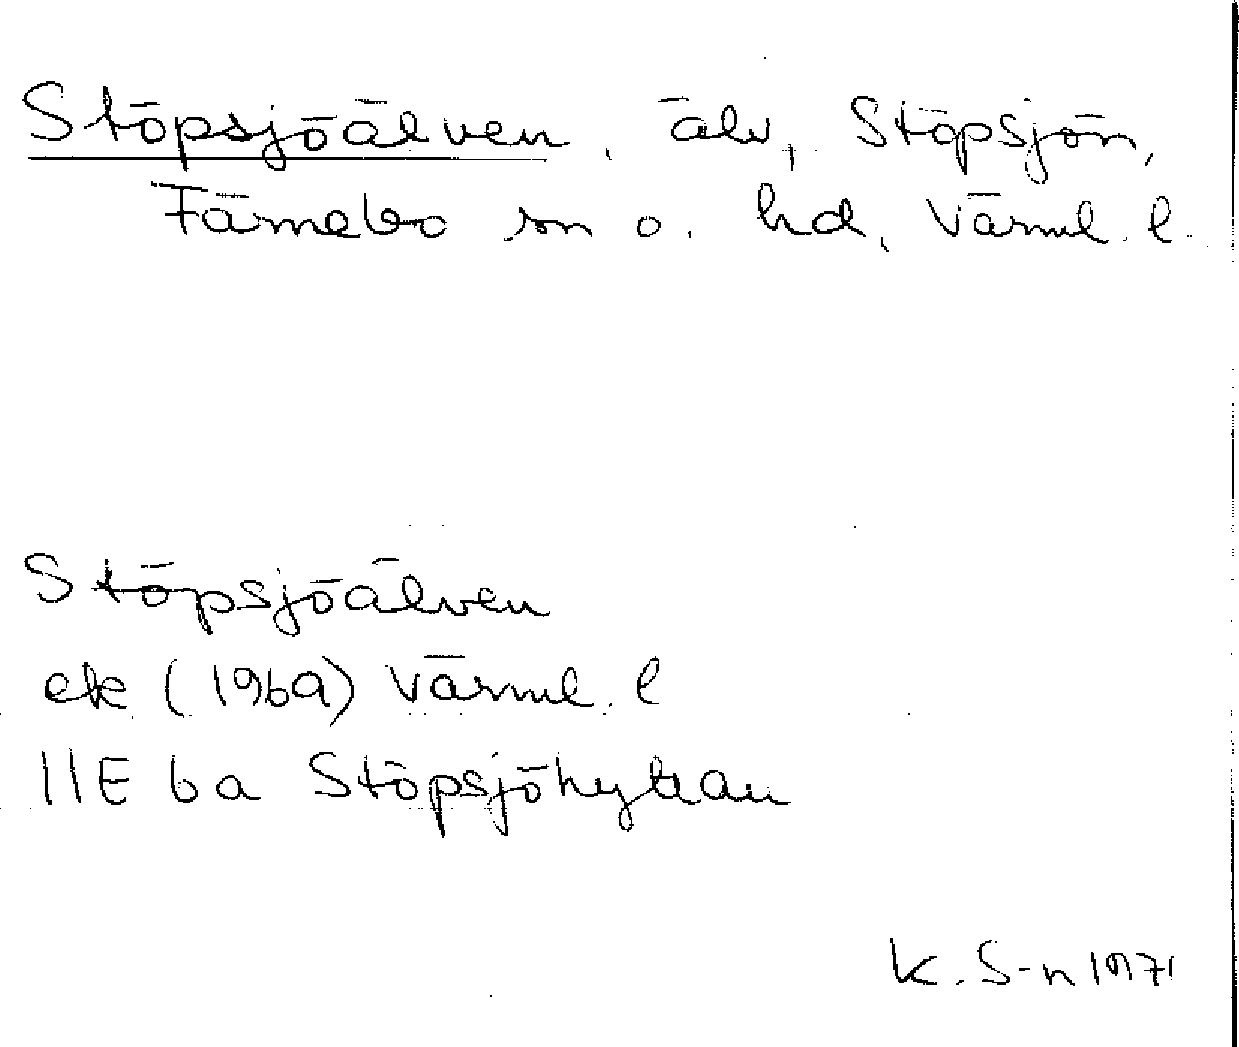 Stöpsjöälven, älv, Stöpsjön,
Färnebo sn o. hd, Värml. l.
Stöpsjöälven
ek (1969) Värml. l
11E 6a Stöpsjöhyttan
K. S-n 1971